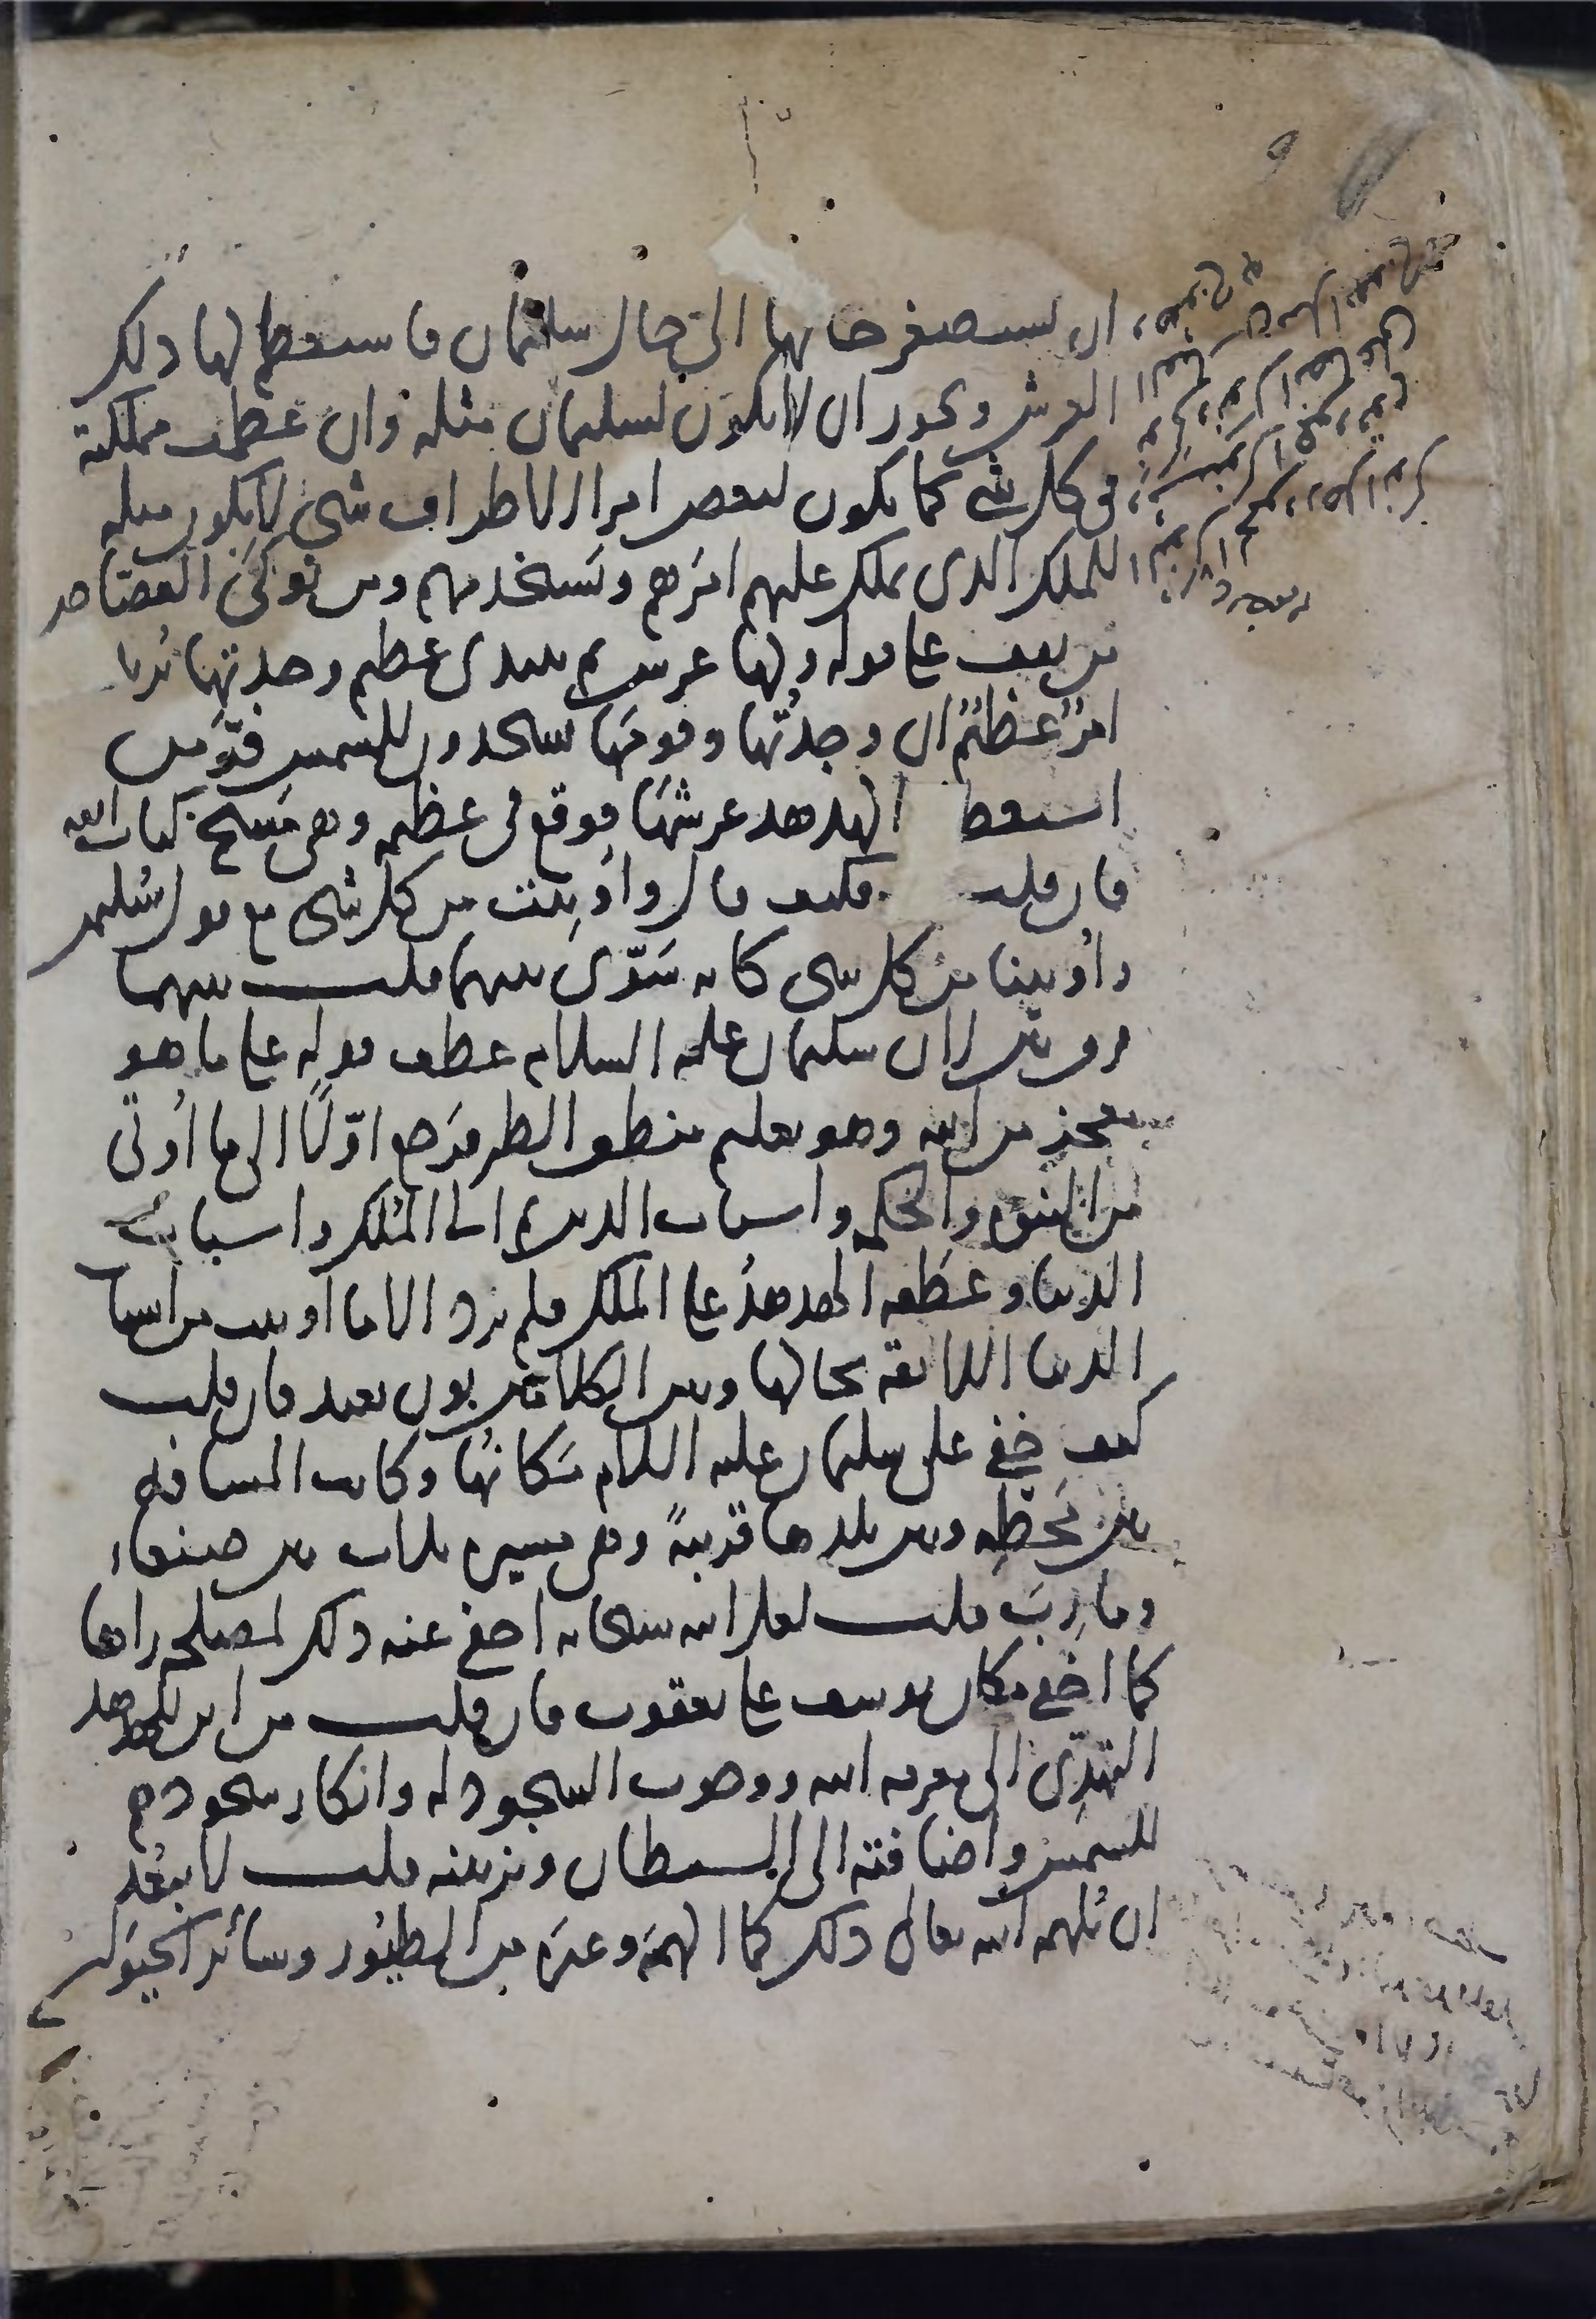 ان يستصغر حالها الى حال سليمان فاستعظم لها ذلك
العرش ويجوز ان لا يكون لسليمان مثله وان عظمت مملكته
في كل شي كما يكون لبعض امراء الاطراف شي لا يكون مثله
للملك الذي يملك عليهم امرهم ويستخدمهم ومن نوكى القصاص
من يقف على قوله ولها عرش ثم يبتدي عظيم وجدتها يريد
امر عظيم ان وجدتها وقومها يسجدون للشمس فر من
استعظام الهدهد عرشها فوقع في عظيمة وهي مسخ كتاب الله
فان قلت فكيف قال واوتيت من كل شي مع قول سليمن
واوتينا من كل شي كانه سوى بينهما قلت بينهما
فرق بين لان سليمان عليه السلام عطف قوله على ما هو
معجز من الله وهو تعليم منطق الطير فرجع اولا الى ما اوتي
من النبوة والحكمة واسباب الدين ثم الى الملك واسباب
الدنيا وعطفه الهدهد على الملك فلم يرد الا ما اوتيت من اسباب
الدنيا اللائقة بحالها وبين الكلامين بون بعيد فان قلت
كيف خفي على سليمان عليه السلام مكانها وكانت المسافة
بين محطه وبين بلدها قريبة وهي مسيرة ثلاث بين صنعاء
ومارب قلت لعل الله سبحانه اخفى عنه ذلك لمصلحة راها
كما اخفى مكان يوسف على يعقوب فان قلت من اين للهدهد
التهدي الى معرفة الله ووجوب السجود له وانكار سجودهم
للشمس واضافته الى الشيطان وتزيينه قلت لا يبعد
ان يلهمه الله تعالى ذلك كما الهمه وغيره من الطيور وسائر الحيوان